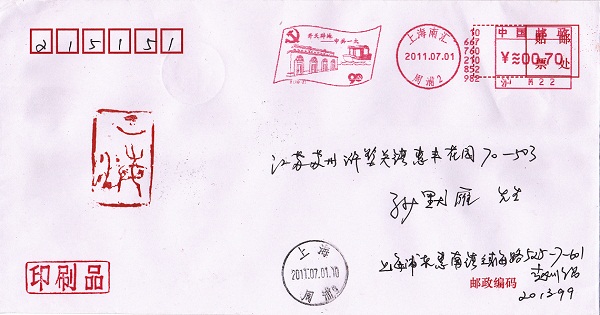 215151
开天辟地
中共一大
90
上海南汇
2011.07.01
周浦2
10
667
760
210
852
982
中国邮政
¥≈00.70
沪 M22
贴邮
票处
江苏苏州浒墅关镇惠丰花园70-503
孙默雁 先生
上海
2011.07.01.10
周浦
上海浦东惠南镇 海路525-7-601
印刷品
邮政编码
201399